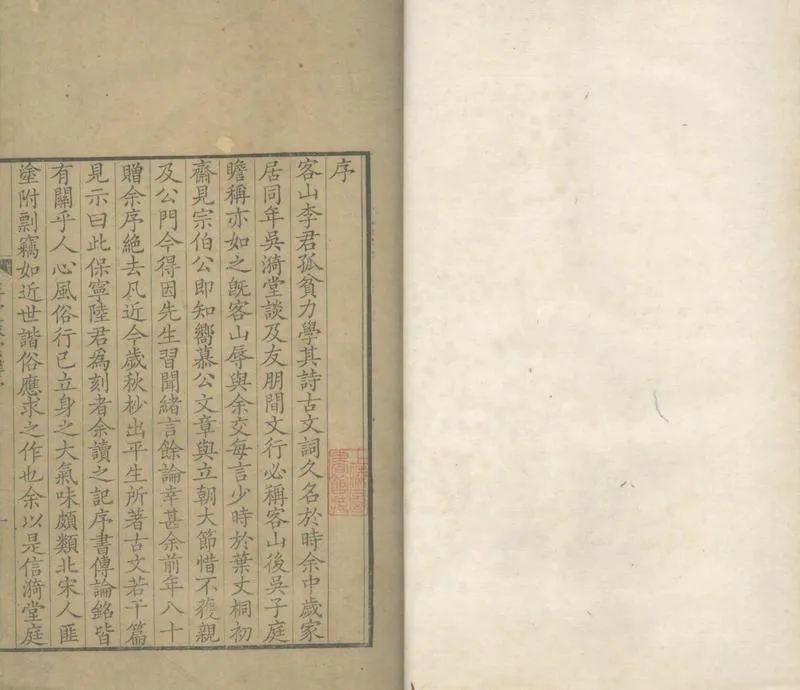 序
客山李君孤貧力學其詩古文詞久名於時余中歲家
居同年吳漪堂談及友朋間文行必稱客山後吳子庭
瞻稱亦如之既客山辱與余交每言少時於葉丈桐初
齋見宗伯公即知嚮慕公文章與立朝大節惜不獲親
及公門今得因先生習聞緒言餘論幸甚余前年八十
贈余序絕去凡近今歲秋杪出平生所著古文若干篇
見示曰此保寧陸君爲刻者余讀之記序書傳論銘皆
有關乎人心風俗行已立身之大氣味頗類北宋人匪
塗附剽竊如近世諧俗應求之作也余以是信漪堂庭